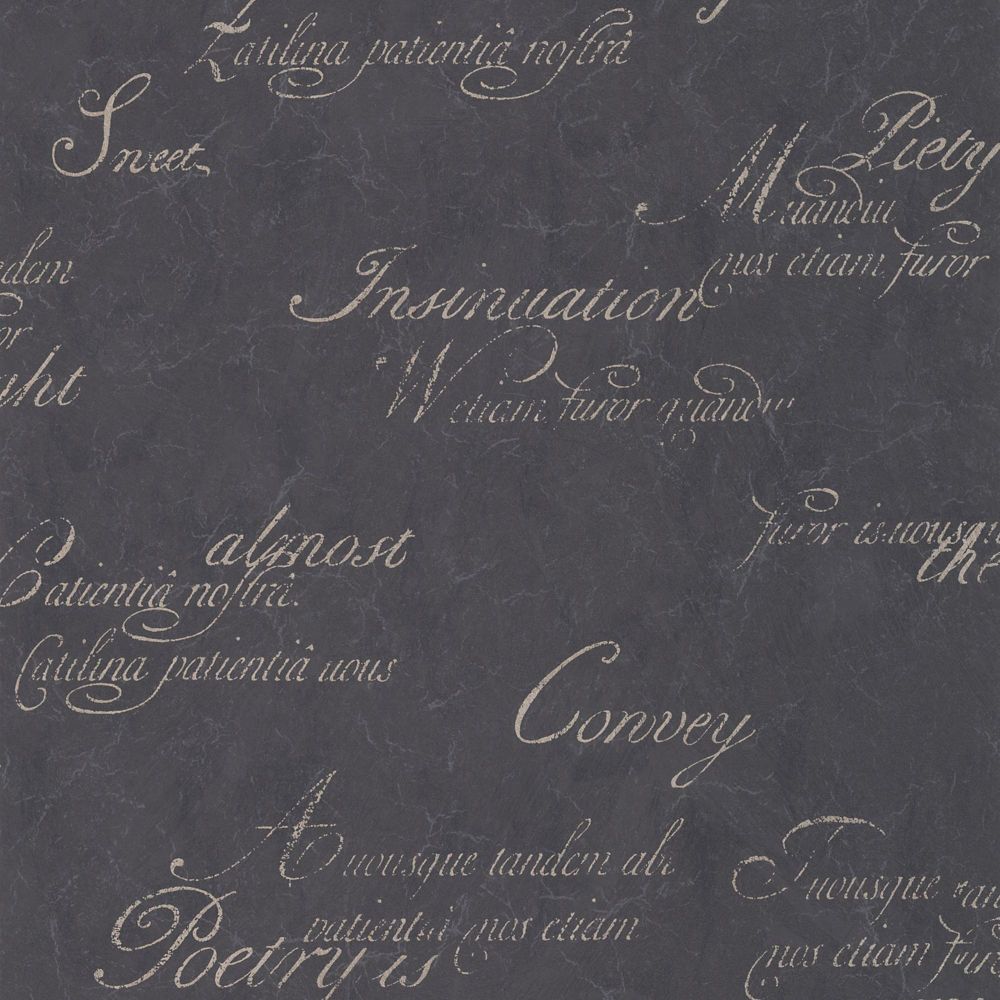 Catilina patientiâ nostrâ
Sweet
Piety
uandiu
nos etiam furor
ndem
Insinuation
or
ght
W etiam furor quandiu
furor is uousqu
almost
the
Patientiâ nostrâ.
Catilina patientiâ uous
Convey
A uousque tandem abu
T uousque tan
patientiâ nos etiam
Poetry is
nos etiam furor